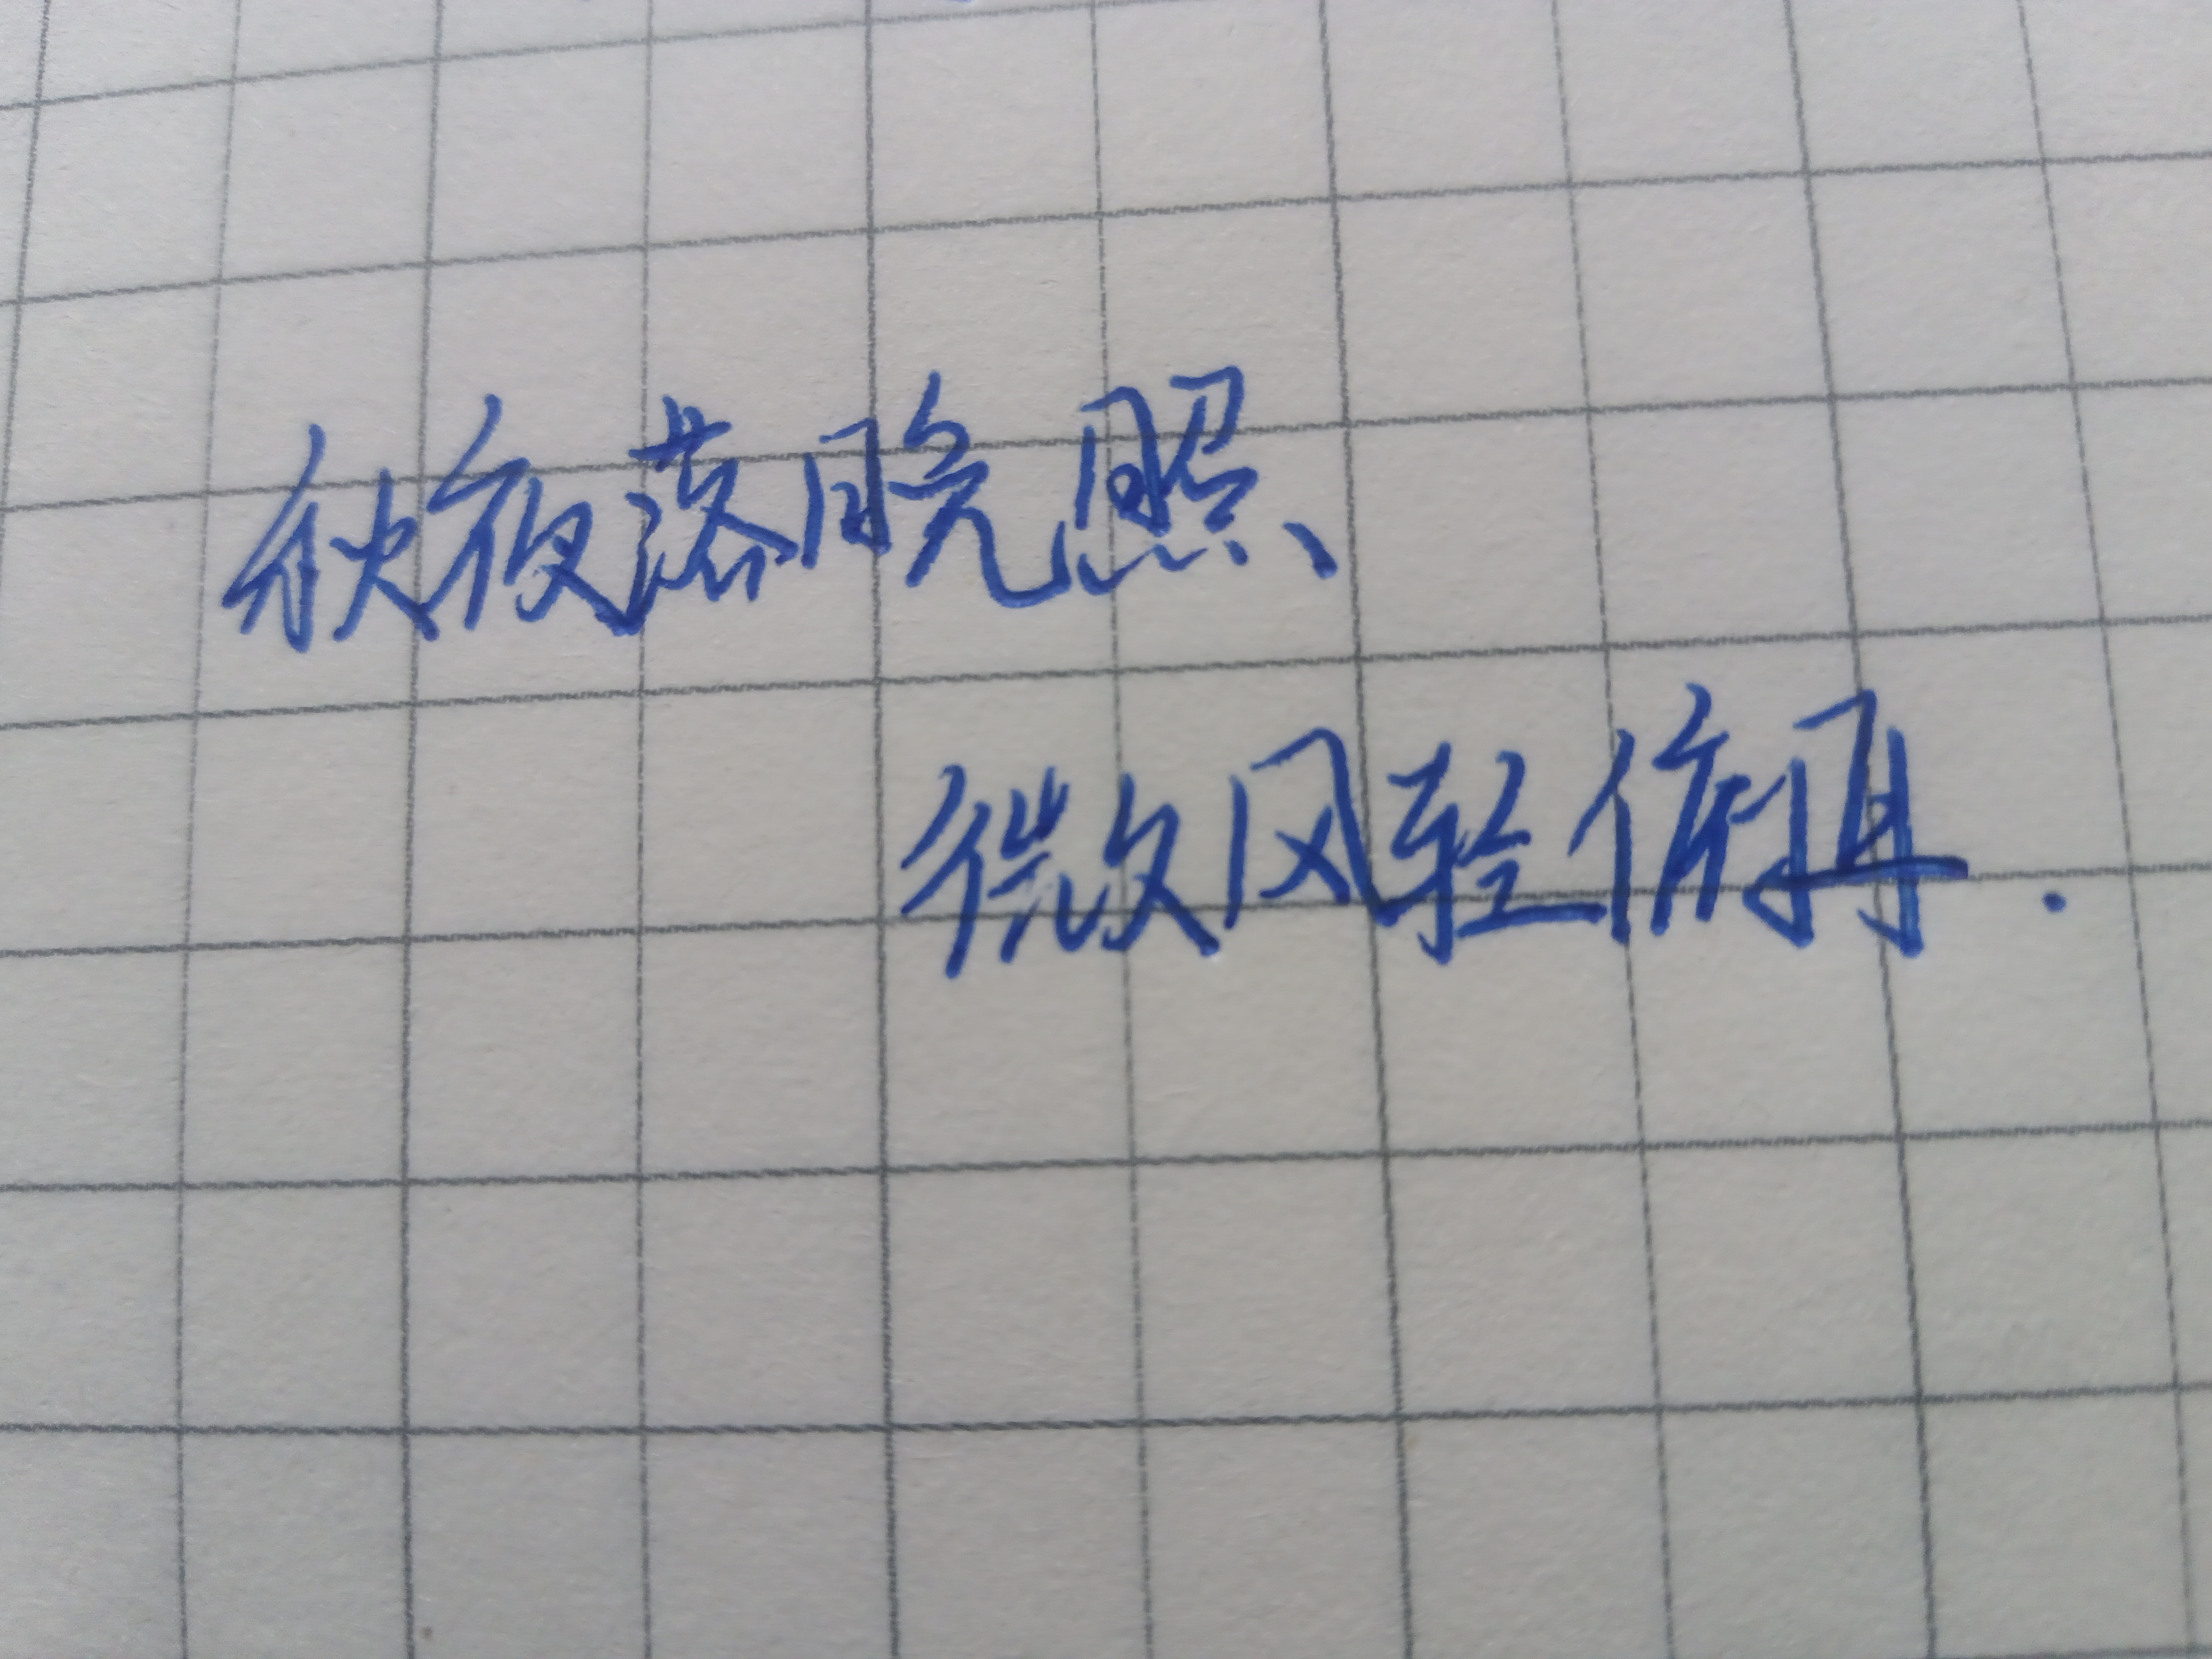 秋夜落晚照、
微风轻俯耳.